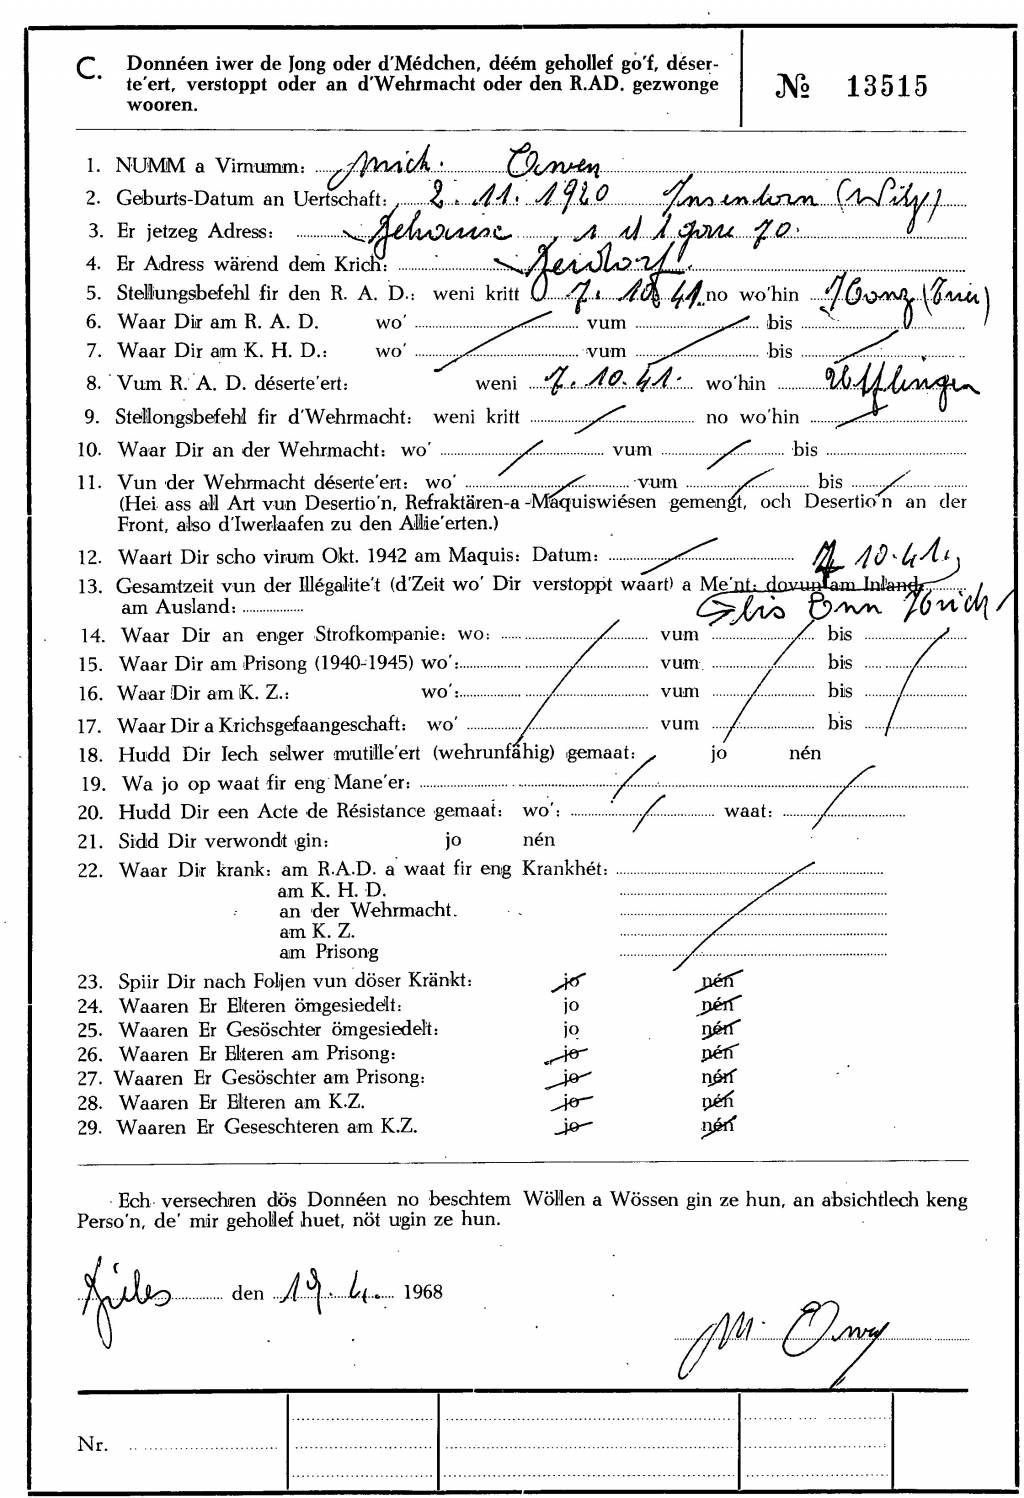 C. Donnéen iwer de Jong oder d'Médchen, déém gehollef go'f, déser-
te'ert, verstoppt oder an d'Wehrmacht oder den R.AD. gezwonge
wooren.
№ 13515
1. NUMM a Virnumm: Mich.
2. Geburts-Datum an Uertschaft: 2. 11. 1920 Insenborn (Wiltz)
3. Er jetzeg Adress: 70.
4. Er Adress wärend dem Krich:
5. Stellungsbefehl fir den R. A. D.: weni kritt 7. 10. 41. no wo'hin Conz (Trier)
6. Waar Dir am R. A. D. wo' vum bis
7. Waar Dir am K. H. D.: wo' vum bis
8. Vum R. A. D. déserte'ert: weni 7. 10. 41. wo'hin Ülflingen
9. Stellongsbefehl fir d'Wehrmacht: weni kritt no wo'hin
10. Waar Dir an der Wehrmacht: wo' vum bis
11. Vun der Wehrmacht déserte'ert: wo' vum bis
(Hei ass all Art vun Desertio'n, Refraktären-a-Maquiswiésen gemengt, och Desertio'n an der
Front, also d'Iwerlaafen zu den Allie'erten.)
12. Waart Dir scho virum Okt. 1942 am Maquis: Datum: 7. 10. 41.
13. Gesamtzeit vun der Illégalite't (d'Zeit wo' Dir verstoppt waart) a Me'nt: dovun am Inland
am Ausland: bis Enn Krich
14. Waar Dir an enger Strofkompanie: wo: vum bis
15. Waar Dir am Prisong (1940-1945) wo': vum bis
16. Waar Dir am K. Z.: wo': vum bis
17. Waar Dir a Krichsgefaangeschaft: wo' vum bis
18. Hudd Dir Iech selwer mutille'ert (wehrunfähig) gemaat: jo nén
19. Wa jo op waat fir eng Mane'er:
20. Hudd Dir een Acte de Résistance gemaat: wo': waat:
21. Sidd Dir verwondt gin: jo nén
22. Waar Dir krank: am R.A.D. a waat fir eng Krankhét:
am K. H. D.
an der Wehrmacht.
am K. Z.
am Prisong
23. Spiir Dir nach Foljen vun döser Kränkt: jo nén
24. Waaren Er Elteren ömgesiedelt: jo nén
25. Waaren Er Gesöschter ömgesiedelt: jo nén
26. Waaren Er Elteren am Prisong: jo nén
27. Waaren Er Gesöschter am Prisong: jo nén
28. Waaren Er Elteren am K.Z. jo nén
29. Waaren Er Geseschteren am K.Z. jo nén
Ech versechren dös Donnéen no beschtem Wöllen a Wössen gin ze hun, an absichtlech keng
Perso'n, de' mir gehollef huet, nöt ugin ze hun.
den 19. 4. 1968
M.
Nr.